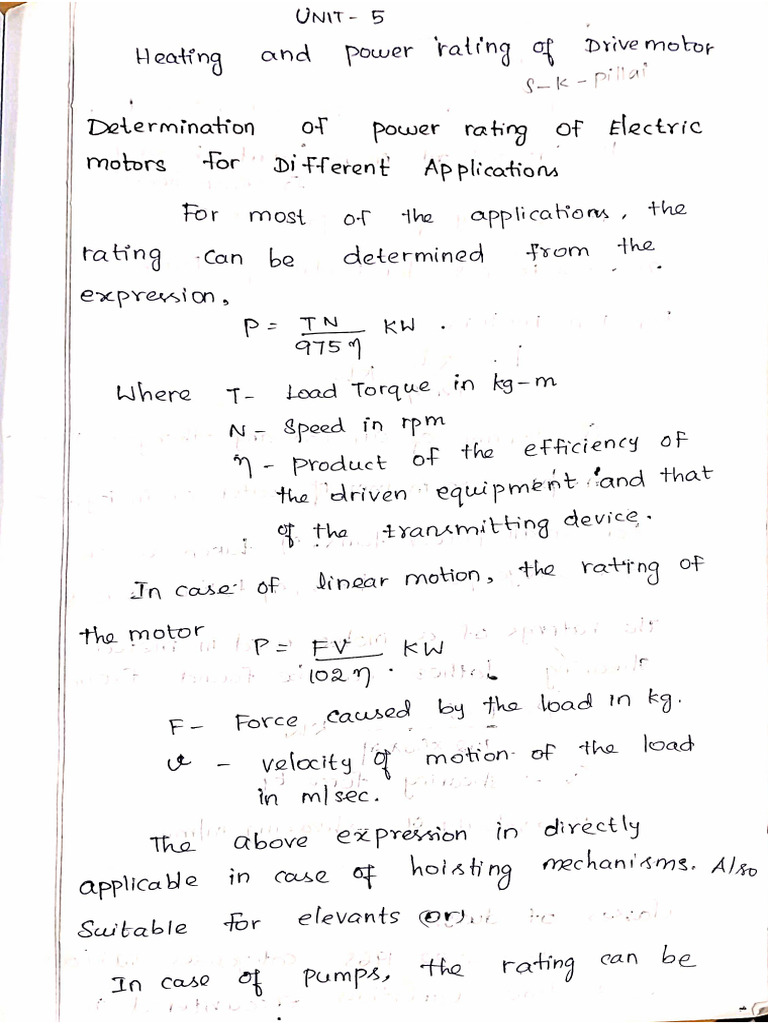 UNIT - 5
Heating and power rating of Drive motor
S-K-pillai
Determination of power rating of Electric
motors for Different Applications
For most of the applications, the
rating can be determined from the
expression,
P = TN / 975η KW .
Where T- Load Torque in kg-m
N - Speed in rpm
η - product of the efficiency of
the driven equipment and that
of the transmitting device.
In case of linear motion, the rating of
the motor
P = FV / 102η KW .
F - Force caused by the load in kg.
v - velocity of motion of the load
in m/sec.
The above expression in directly
applicable in case of hoisting mechanisms. Also
Suitable for elevants or
In case of pumps, the rating can be